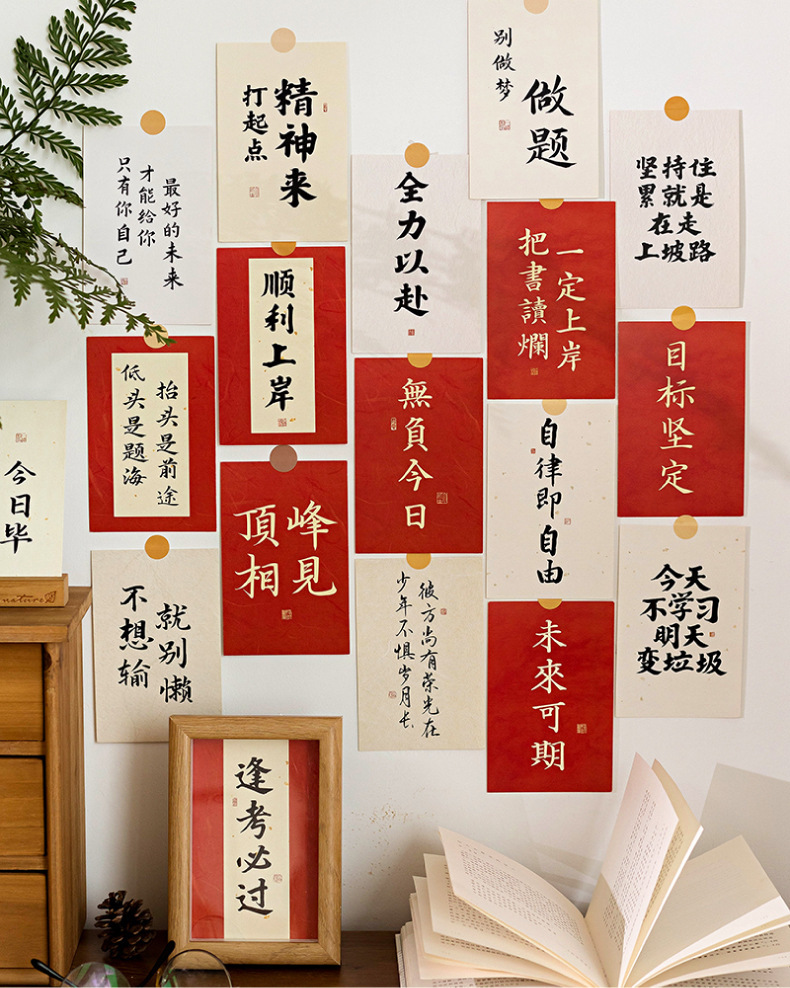 别做梦
做题
打起点
精神来
只有你自己
才能给你
最好的未来
全力以赴
坚持住
累就是
在走
上坡路
顺利上岸
把書讀爛
一定上岸
低头是题海
抬头是前途
無負今日
目标坚定
今日毕
頂峰
相見
自律即自由
不想输
就别懒
少年不惧岁月长
彼方尚有荣光在
未來可期
今天
不学习
明天
变垃圾
逢考必过